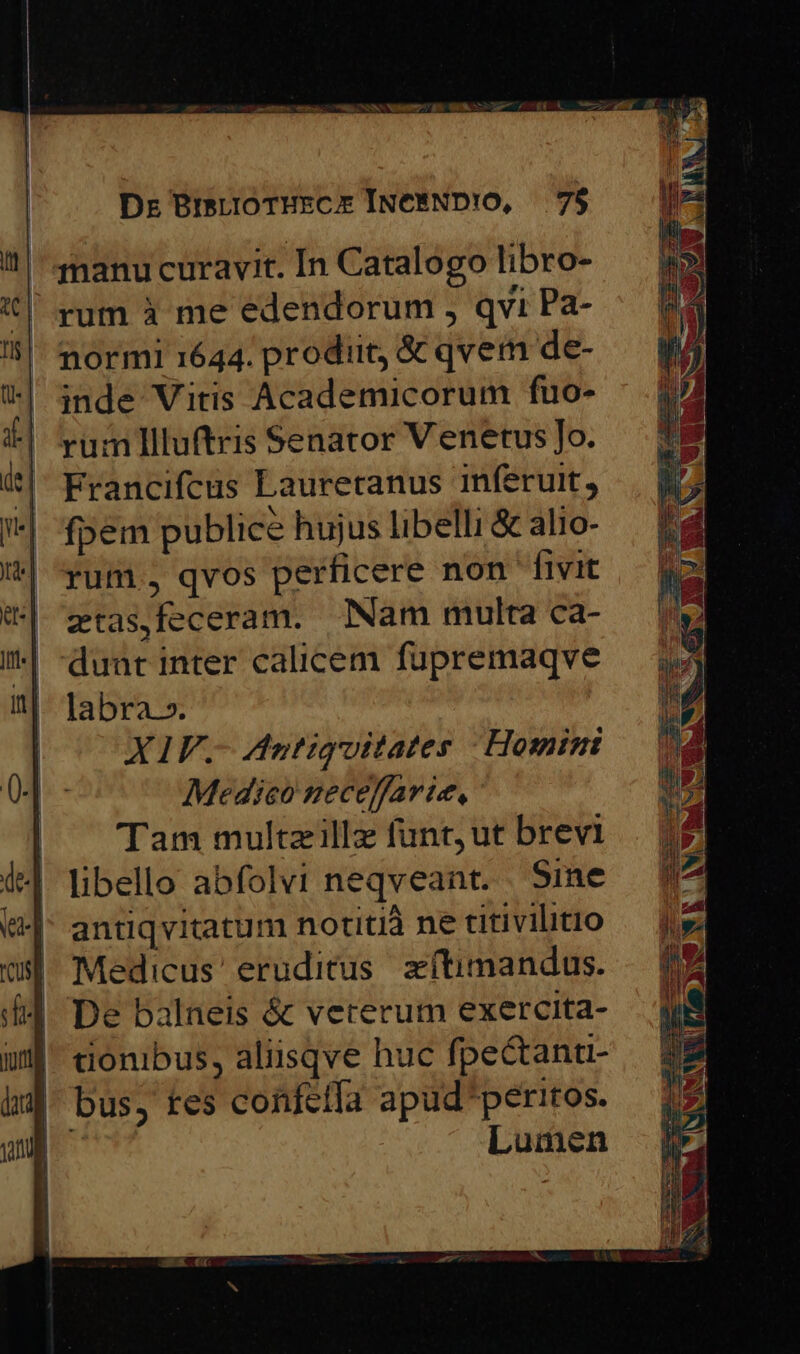 DE BIBLIOTHECÆ INCENDIO, 75
manu curavit. In Catalogo libro-
rum à me edendorum , qvi Pa-
normi 1644. prodiit, & qvem de-
inde Vitis Academicorum ſuo-
rum Illuſtris Senator Venetus Jo.
Franciſcus Lauretanus inſeruit,
ſpem publicè hujus libelli & alio-
rum , qvos perficere non ſivit
ætas, feceram. Nam multa ca-
dunt inter calicem ſupremaqve
labra.
XIV. Antiqvitates Homini
Medico neceſſariæ.
Tam multæ illæ ſunt, ut brevi
libello abſolvi neqveant. Sine
antiqvitatum notitiâ ne titivilitio
Medicus eruditus æſtimandus.
De balneis & veterum exercita-
tionibus, aliisqve huc ſpectanti-
bus, res confeſſa apud peritos.
Lumen